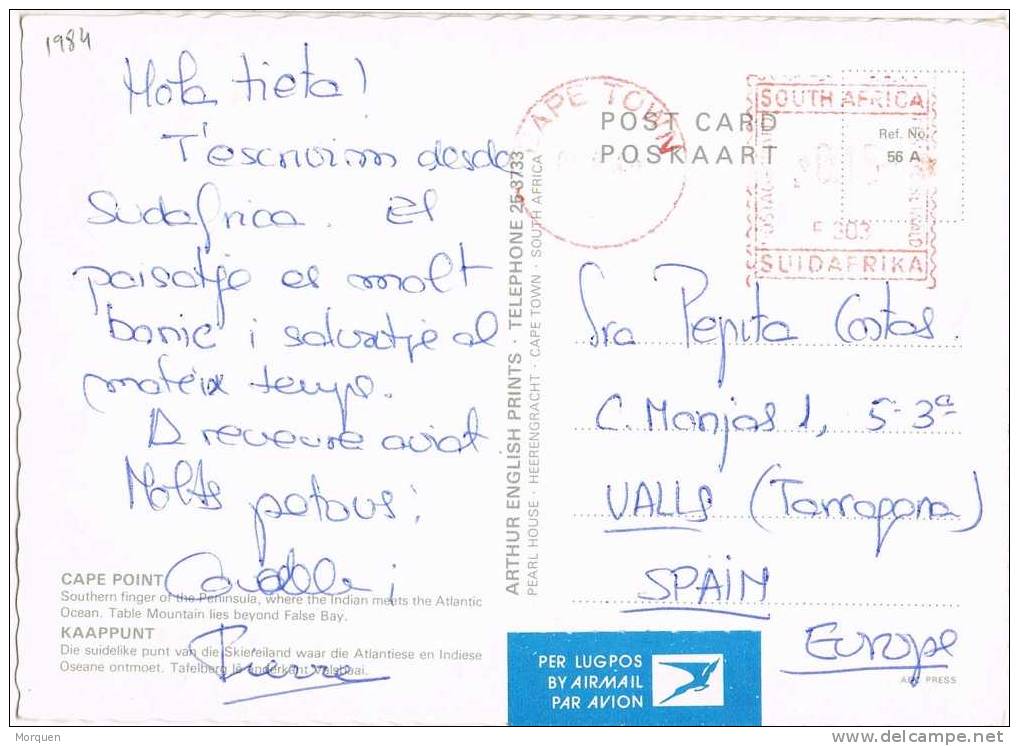 1984
Hola tieta!
T'escrivim desde
Sudafrica. El
paisatje es molt
bonic i salvatje al
mateix temps.
A reveure aviat
Molts petons;
i
Pierre
CAPE POINT
Southern finger of the Peninsula, where the Indian meets the Atlantic
Ocean. Table Mountain lies beyond False Bay.
KAAPPUNT
Die suidelike punt van die Skiereiland waar die Atlantiese en Indiese
Oseane ontmoet. Tafelberg lê anderkant Valsbaai.
ARTHUR ENGLISH PRINTS · TELEPHONE 25-3733
PEARL HOUSE · HEERENGRACHT · CAPE TOWN · SOUTH AFRICA
CAPE TOWN
POST CARD
POSKAART
SOUTH AFRICA
SUIDAFRIKA
Ref. No.
56 A
Sra Pepita Costas.
C. Monjos 1, 5-3ª
VALLS (Tarragona)
SPAIN
Europe
PER LUGPOS
BY AIRMAIL
PAR AVION
ABC PRESS
Morquen
www.delcampe.net